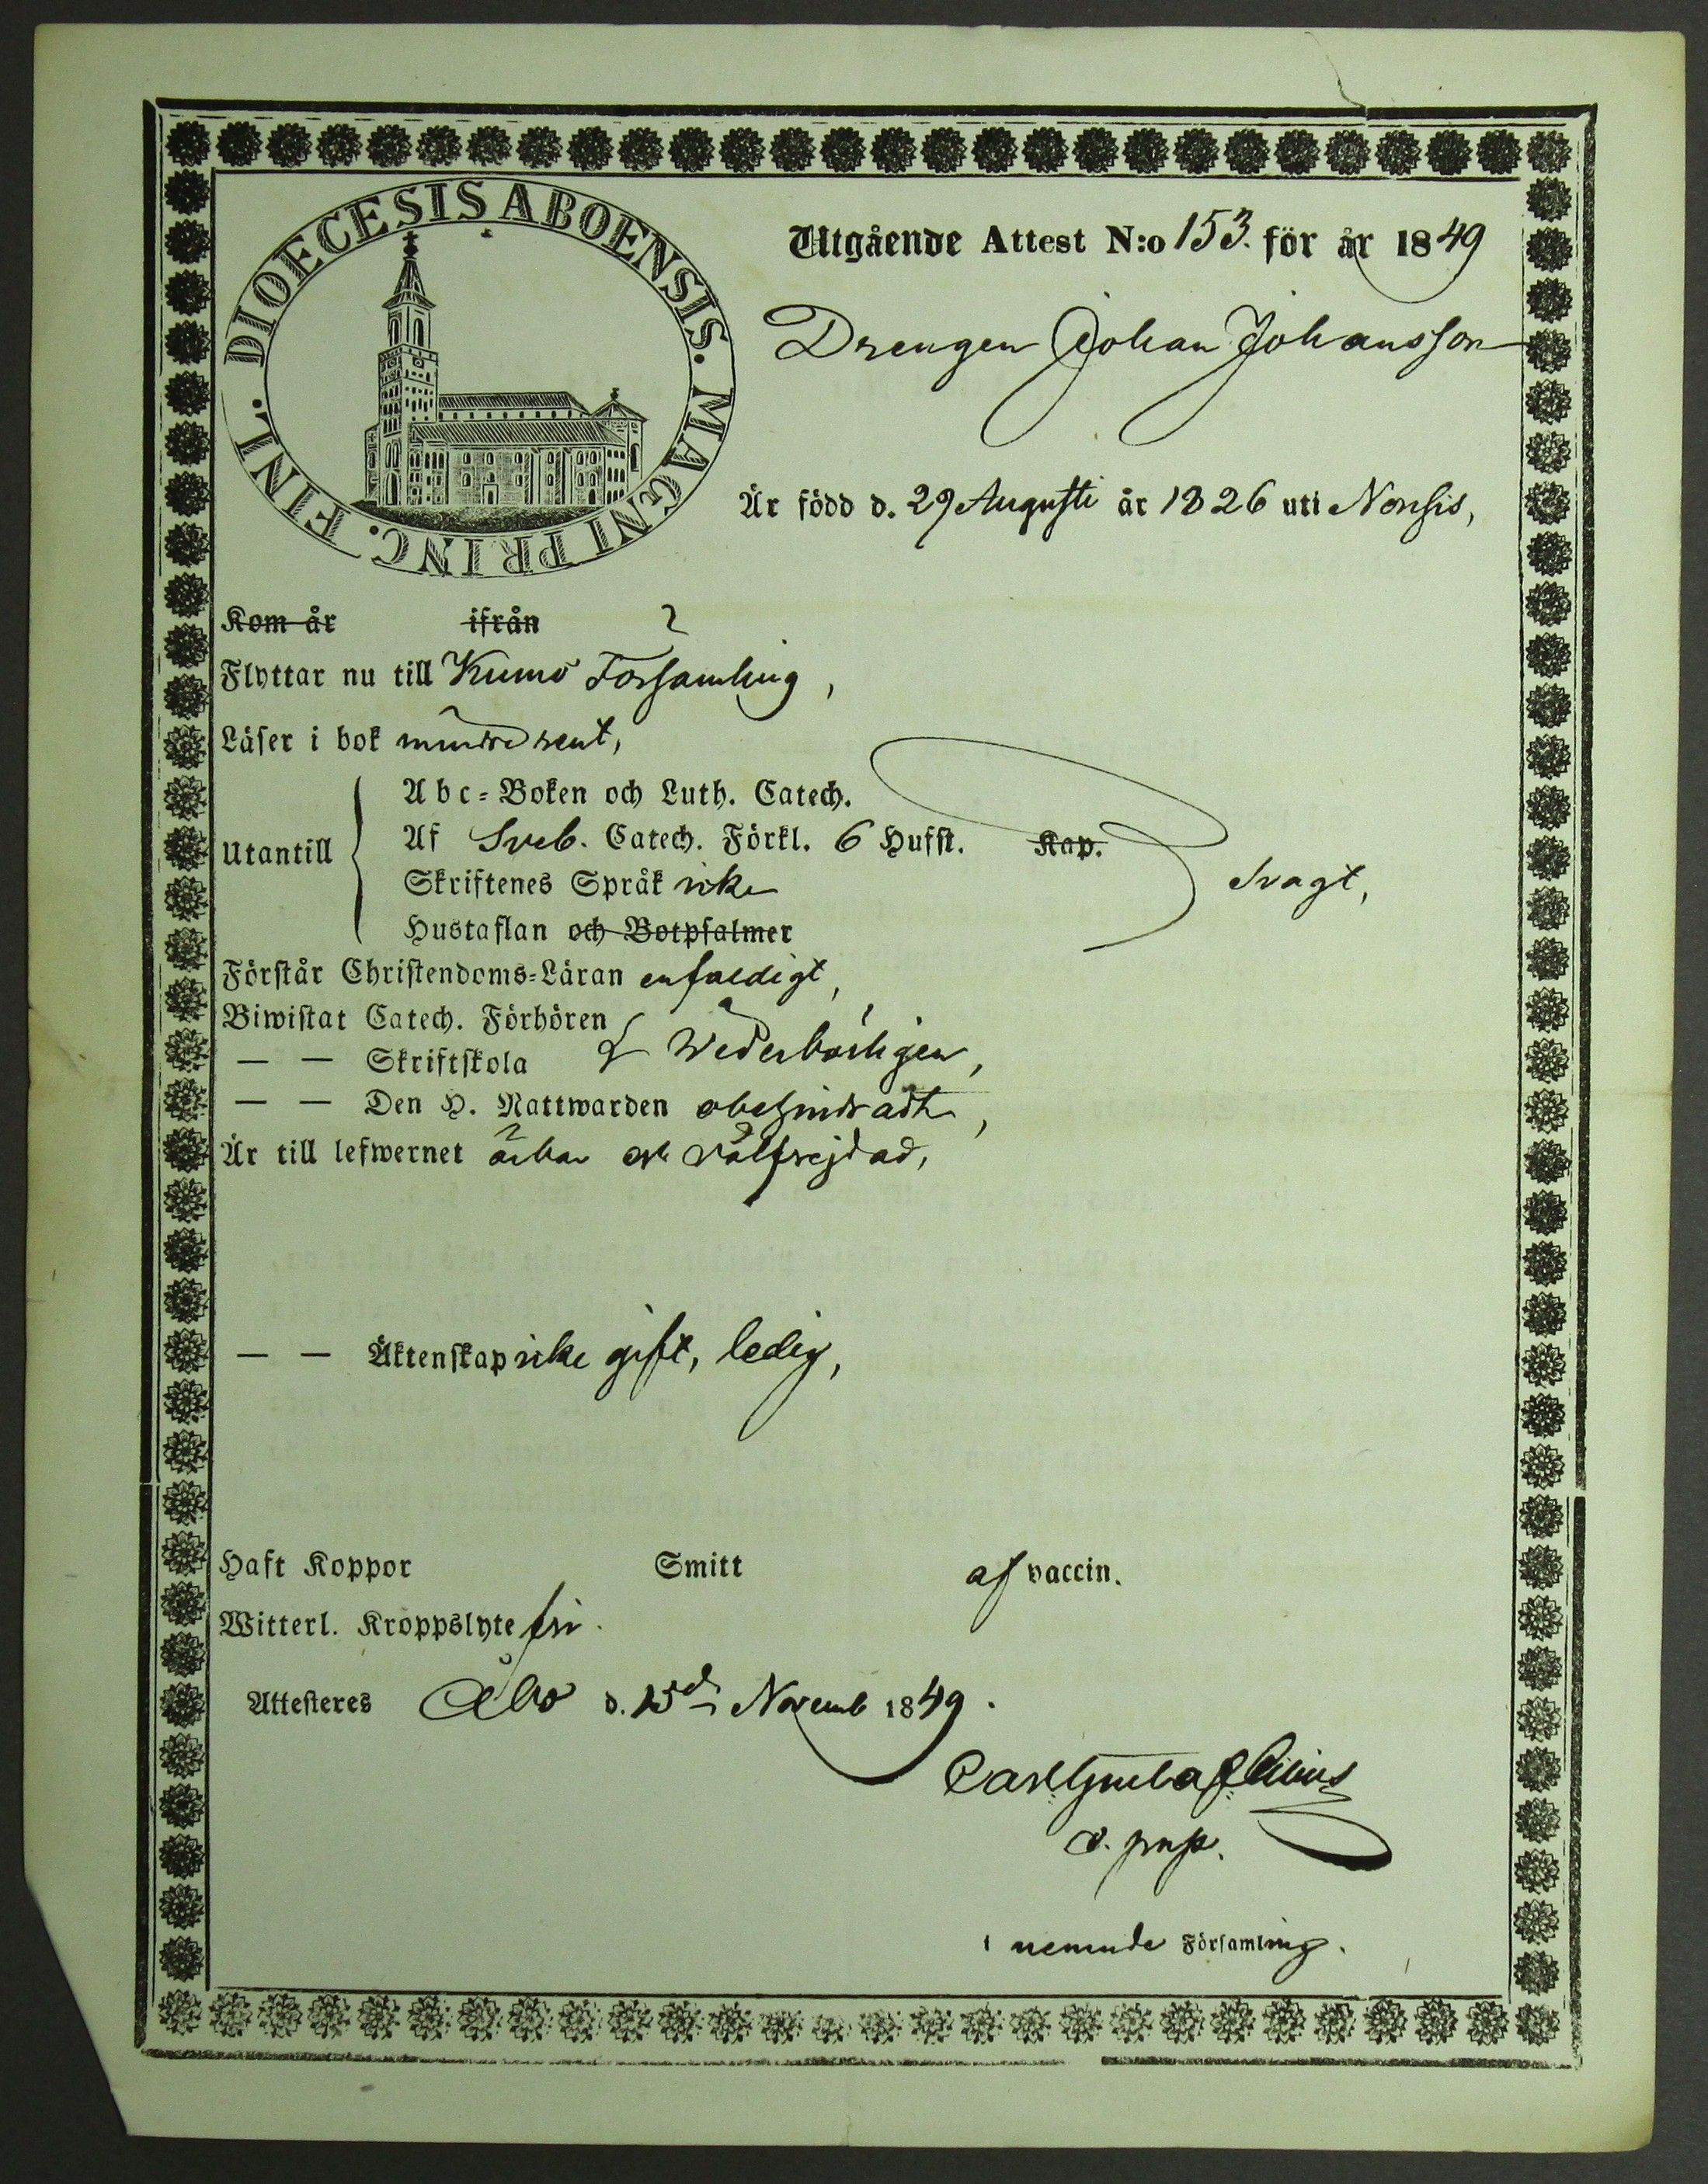 DIOECESIS ABOENSIS. MAGNI PRINC. FINL.
Utgående Attest N:o 153. för år 1849
Drengen Johan Johansson
Är född d. 29 Augusti år 1826 uti Nousis,
Kom år ifrån
Flyttar nu till Kumo Församling,
Läser i bok mindre rent,
Abc-Boken och Luth. Catech.
Utantill Af Sveb. Catech. Förkl. 6 Hufst. Kap.
Skriftenes Språk icke svagt,
Hustaflan och Botpsalmer
Förstår Christendoms-Läran enfaldigt,
Biwistat Catech. Förhören
— — Skriftskola Wederbörligen,
— — Den H. Nattwarden obehindradt,
Är till lefwernet ärbar och välfrejdad,
— — Äktenskap icke gift, ledig,
Haft Koppor Smitt af vaccin.
Witterl. Kroppslyte fri.
Attesteres Åbo d. 15de Novemb 1849.
Carl Gustaf
v. past.
i nemnde Församling.